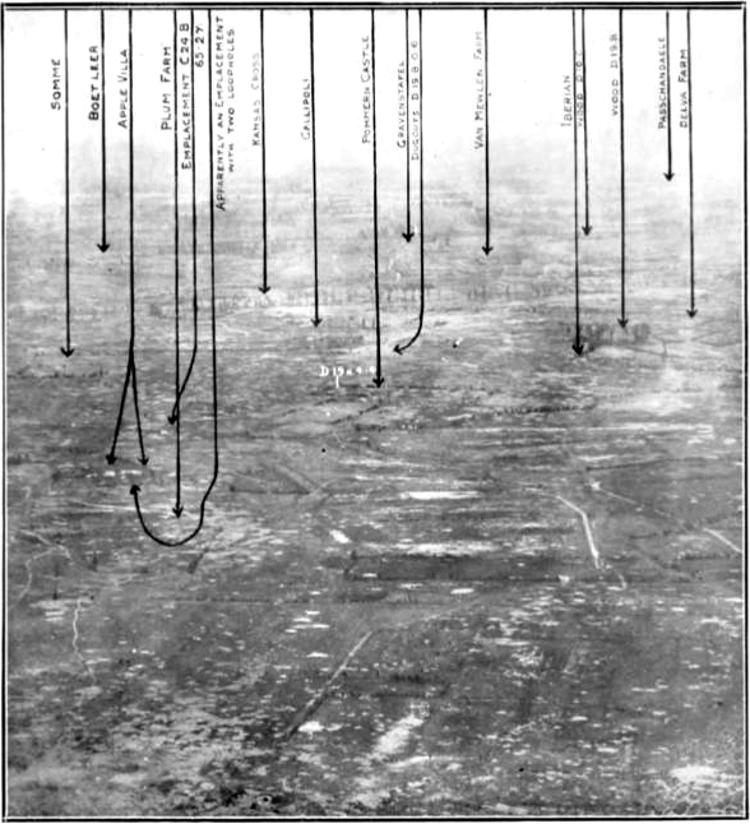 SOMME
BOETLEER
APPLE VILLA
PLUM FARM
EMPLACEMENT C24B
65·27
APPARENTLY AN EMPLACEMENT
WITH TWO LOOPHOLES
KANSAS CROSS
GALLIPOLI
POMMERN CASTLE
GRAVENSTAFEL
DUGOUTS D.19.B.0.6
VAN MEWLEN FARM
IBERIAN
WOOD
WOOD D.19.B
PASSCHANDAELE
DELVA FARM